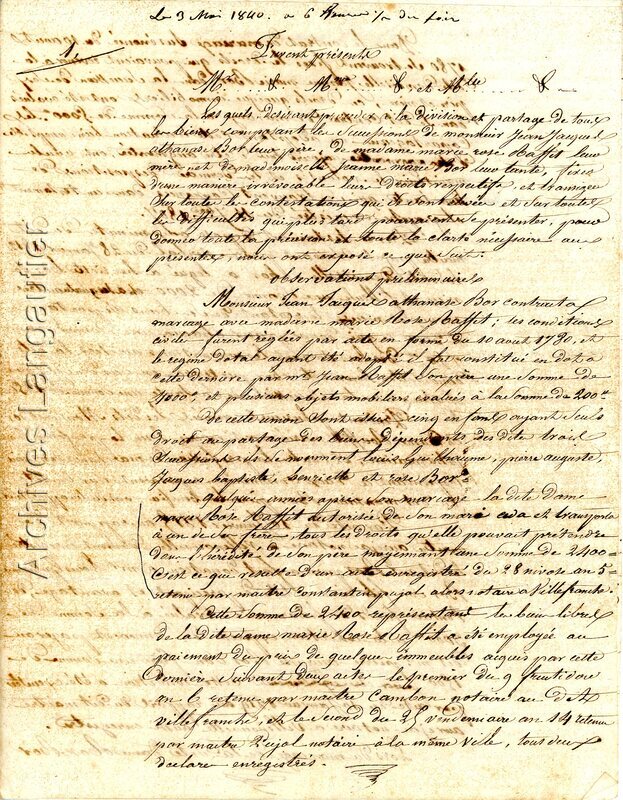 Le 3 Mai 1840. a 6 heures ½ du soir
1.
Furent présents
Mr ..... & Mme ..... & et Mlle ..... &
Lesquels desirant proceder à la division et partage de tous
les biens composant les Successions de monsieur Jean Jacques
athanase Bor leur père, de madame marie rose Raffit leur
mère et de mademoiselle Jeanne marie Bor leur tante, fixer
d'une manière irrévocable leurs Droits respectifs et transiger
Sur toutes les Contestations qui se sont élevées et Sur toutes
les difficultés qui plus tard pourraient se présenter, pour
donner toute la précision et toute la clarté nécessaire au
présent, nous ont exposé ce que Suit.
observations préliminaires
Monsieur Jean Jacques athanase Bor contracta
mariage avec madame marie Rose Raffit; les conditions
civiles furent reglées par acte en forme du 10 aout 1790, et
le regime dotal ayant été adopté il fut constitué en dot à
cette dernière par mr Jean Raffit Son père une Somme de
4000 et plusieurs objets mobiliers évalués à la Somme de 200
De cette union Sont issus cinq enfans ayant Seuls
Droit au partage des biens Dépendants des dites trois
Successions ils se nomment Louis, pierre auguste,
Jacques baptiste, henriette et rose Bor.
quelques années après Son mariage la dite Dame
marie Rose Raffit autorisée de Son mari céda et transporta
à un de Ses frères tous les droits qu'elle pouvait prétendre
dans l'hérédité de Son père moyennant une Somme de 2400
C'est ce que resulte d'un acte enregistré du 28 nivose an 5
retenu par maitre Constantin pujol alors notaire à Villefranche.
Cette Somme de 2400 représentant les biens libres
de la dite dame marie Rose Raffit a été employée au
paiement du prix de quelques immeubles acquis par cette
Dernière Suivant deux actes le premier du 9 fructidor
an retenu par maitre Cambon notaire au dit
Villefranche, et le Second du 25 vendemiaire an 14 retenu
par maitre Pujol notaire à la même Ville, tous deux
déclarés enregistrés.
Archives Langautier